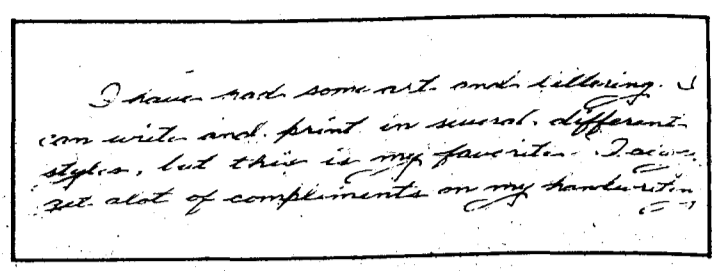 I have had some art and lettering. I
can write and print in several different
styles, but this is my favorite. I
get alot of compliments on my handwritin